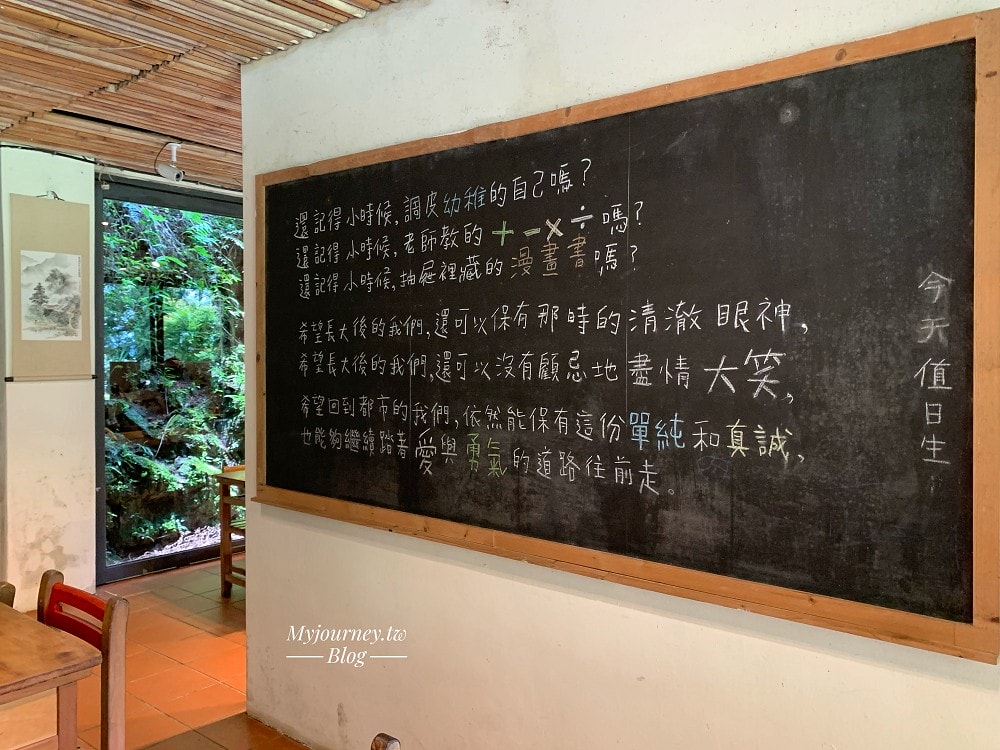 還記得小時候,調皮幼稚的自己嗎?
還記得小時候,老師教的+-×÷嗎?
還記得小時候,抽屜裡藏的漫畫書嗎?
希望長大後的我們,還可以保有那時的清澈眼神,
希望長大後的我們,還可以沒有顧忌地盡情大笑,
希望回到都市的我們,依然能保有這份單純和真誠,
也能夠繼續踏著愛與勇氣的道路往前走。
今天值日生
Myjourney.tw
Blog